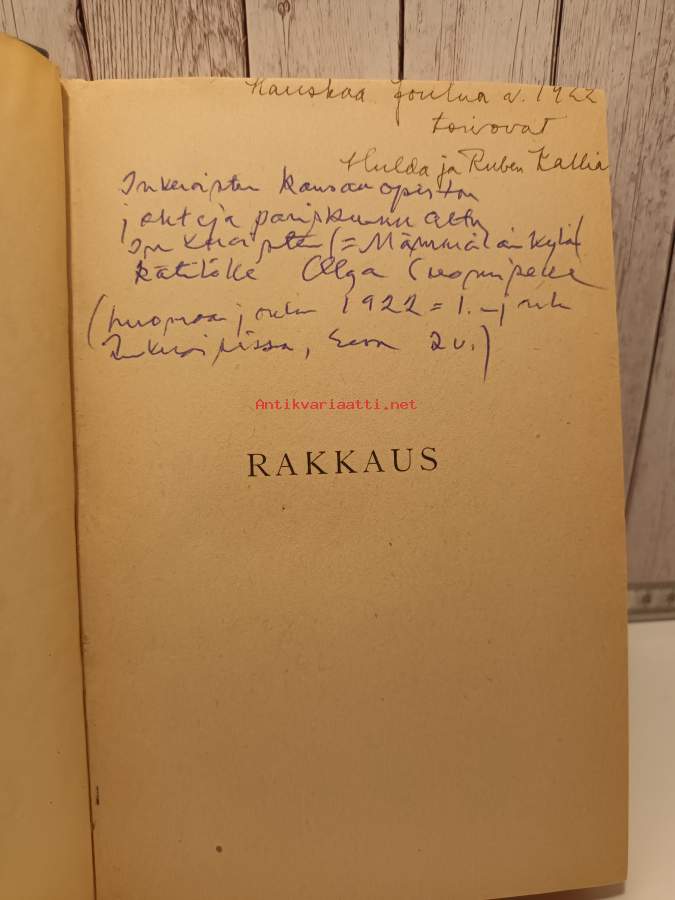 Hauskaa Joulua v. 1922
toivovat
Hulda ja Ruben Kallia
Inkeroisten kansanopiston
johtaja pariskunnalta
Inkeroisten (= Mämmälän kylä)
kätilölle Olga
(huomaa joulu 1922 = 1. joulu
Inkeroisissa, Eeva 2 v.)
Antikvariaatti.net
RAKKAUS